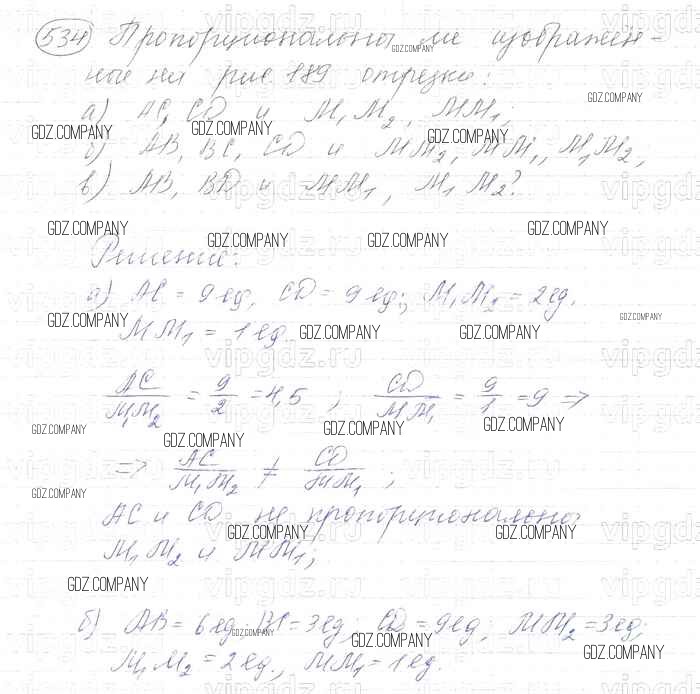 534 Пропорциональны ли изображен-
ные на рис. 189 отрезки:
а) AC, CD и M₁M₂, MM₁;
б) AB, BC, CD и MM₂, MM₁, M₁M₂;
в) AB, BD и MM₁, M₁M₂?
Решение:
а) AC = 9 ед, CD = 9 ед; M₁M₂ = 2 ед.
MM₁ = 1 ед.
AC/M₁M₂ = 9/2 = 4,5 ; CD/MM₁ = 9/1 = 9 =>
=> AC/M₁M₂ ≠ CD/MM₁ ;
AC и CD не пропорциональны
M₁M₂ и MM₁;
б) AB = 6 ед; BC = 3 ед; CD = 9 ед; MM₂ = 3 ед;
M₁M₂ = 2 ед., MM₁ = 1 ед.
GDZ.COMPANY
vipgdz.ru